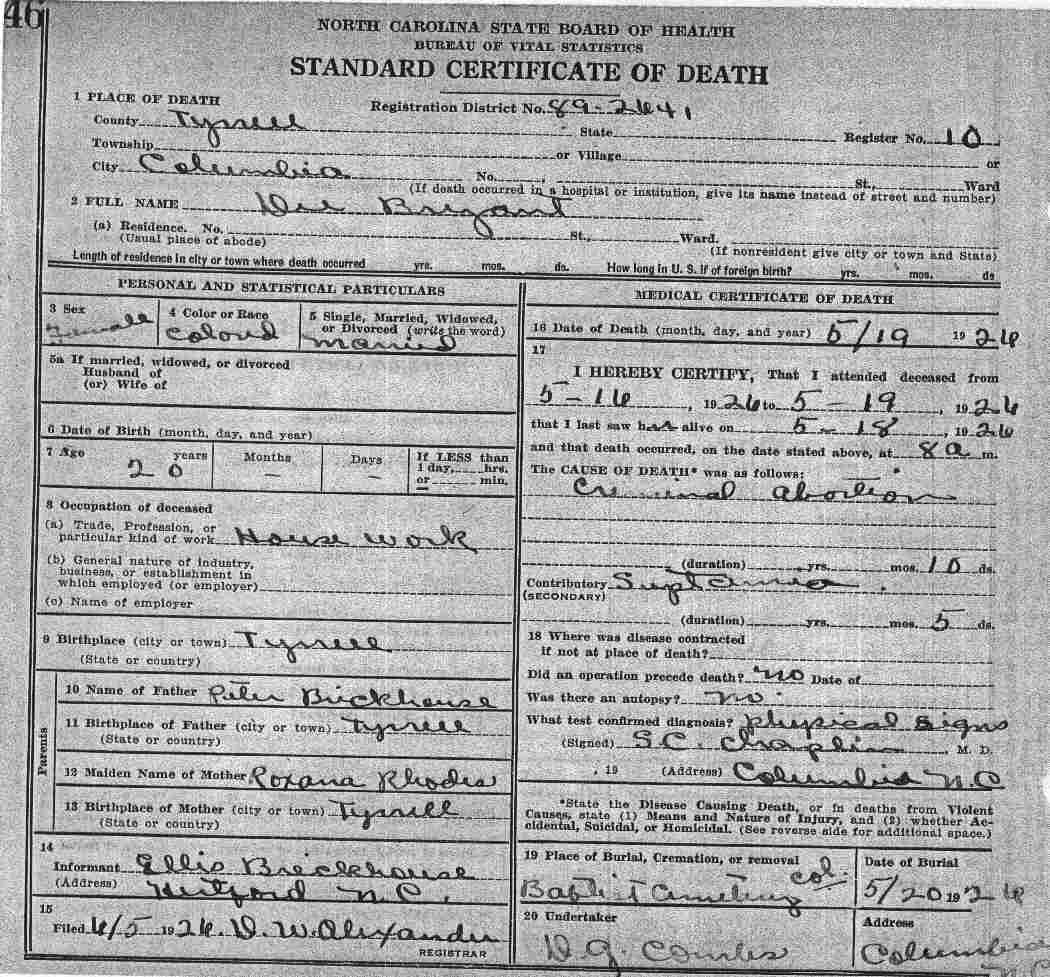 46
NORTH CAROLINA STATE BOARD OF HEALTH
BUREAU OF VITAL STATISTICS
STANDARD CERTIFICATE OF DEATH
1 PLACE OF DEATH
Registration District No. 89-2641
County Tyrrell State Register No. 10
Township or Village or
City Columbia No. , St., Ward
(If death occurred in a hospital or institution, give its name instead of street and number)
2 FULL NAME Bryant
(a) Residence. No. St., Ward.
(Usual place of abode) (If nonresident give city or town and State)
Length of residence in city or town where death occurred yrs. mos. ds. How long in U. S. if of foreign birth? yrs. mos. ds
PERSONAL AND STATISTICAL PARTICULARS
3 Sex
Female
4 Color or Race
Colored
5 Single, Married, Widowed,
or Divorced (write the word)
Married
5a If married, widowed, or divorced
Husband of
(or) Wife of
6 Date of Birth (month, day, and year)
7 Age years Months Days If LESS than
1 day, hrs.
or min.
20 — —
8 Occupation of deceased
(a) Trade, Profession, or
particular kind of work House work
(b) General nature of industry,
business, or establishment in
which employed (or employer)
(c) Name of employer
9 Birthplace (city or town) Tyrrell
(State or country)
Parents
10 Name of Father Peter Brickhouse
11 Birthplace of Father (city or town) Tyrrell
(State or country)
12 Maiden Name of Mother Roxana Rhodes
13 Birthplace of Mother (city or town) Tyrrell
(State or country)
14
Informant Ellis Brickhouse
(Address) N.C.
15
Filed 6/5 1926. D. W. Alexander
REGISTRAR
MEDICAL CERTIFICATE OF DEATH
16 Date of Death (month, day, and year) 5/19 1926
17
I HEREBY CERTIFY, That I attended deceased from
5-16, 1926 to 5-19, 1926
that I last saw her alive on 5-18, 1926
and that death occurred, on the date stated above, at 8a m.
The CAUSE OF DEATH* was as follows:
Criminal abortion
(duration) yrs. mos. 10 ds.
Contributory
(SECONDARY)
(duration) yrs. mos. 5 ds.
18 Where was disease contracted
if not at place of death?
Did an operation precede death? no Date of
Was there an autopsy? no
What test confirmed diagnosis? physical signs
(Signed) S.C. Chaplin, M. D.
, 19 (Address) Columbia N.C.
*State the Disease Causing Death, or in deaths from Violent
Causes, state (1) Means and Nature of Injury, and (2) whether Ac-
cidental, Suicidal, or Homicidal. (See reverse side for additional space.)
19 Place of Burial, Cremation, or removal
col.
Baptist Cemetery
Date of Burial
5/20 1926
20 Undertaker
D. G.
Address
Columbia